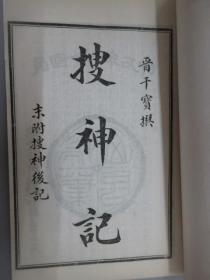 晉干寶撰
搜神記
末附搜神後記